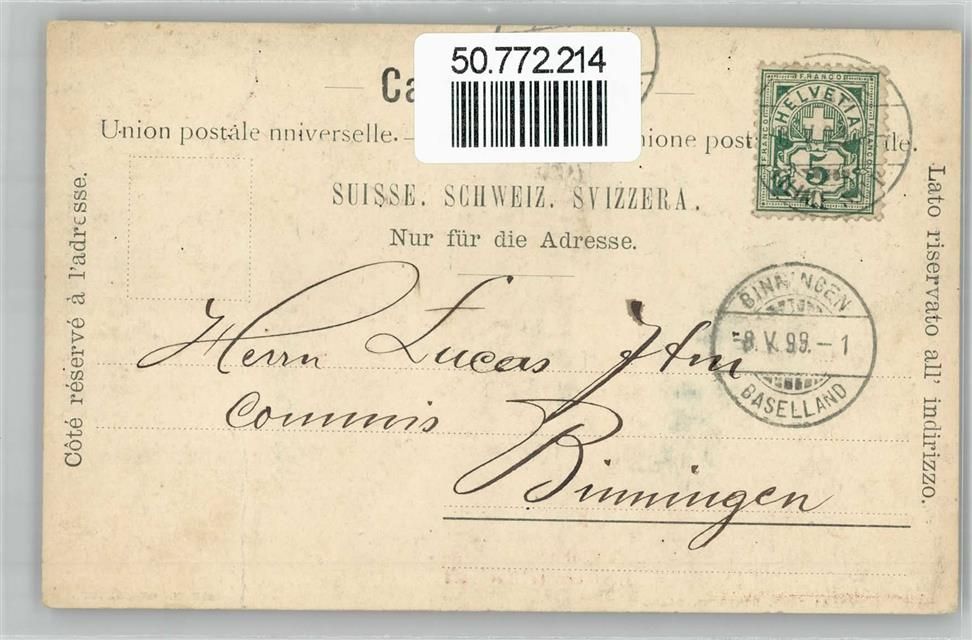 50.772.214
Ca
Union postale nniverselle. — nione post de.
SUISSE. SCHWEIZ. SVIZZERA.
Nur für die Adresse.
Côté réservé à l'adresse.
Lato riservato all' indirizzo.
FRANCO
HELVETIA
FRANCO
FRANCO
5
BINNINGEN
8. V. 99. – 1
BASELLAND
Herrn Lucas
Commis
Binningen